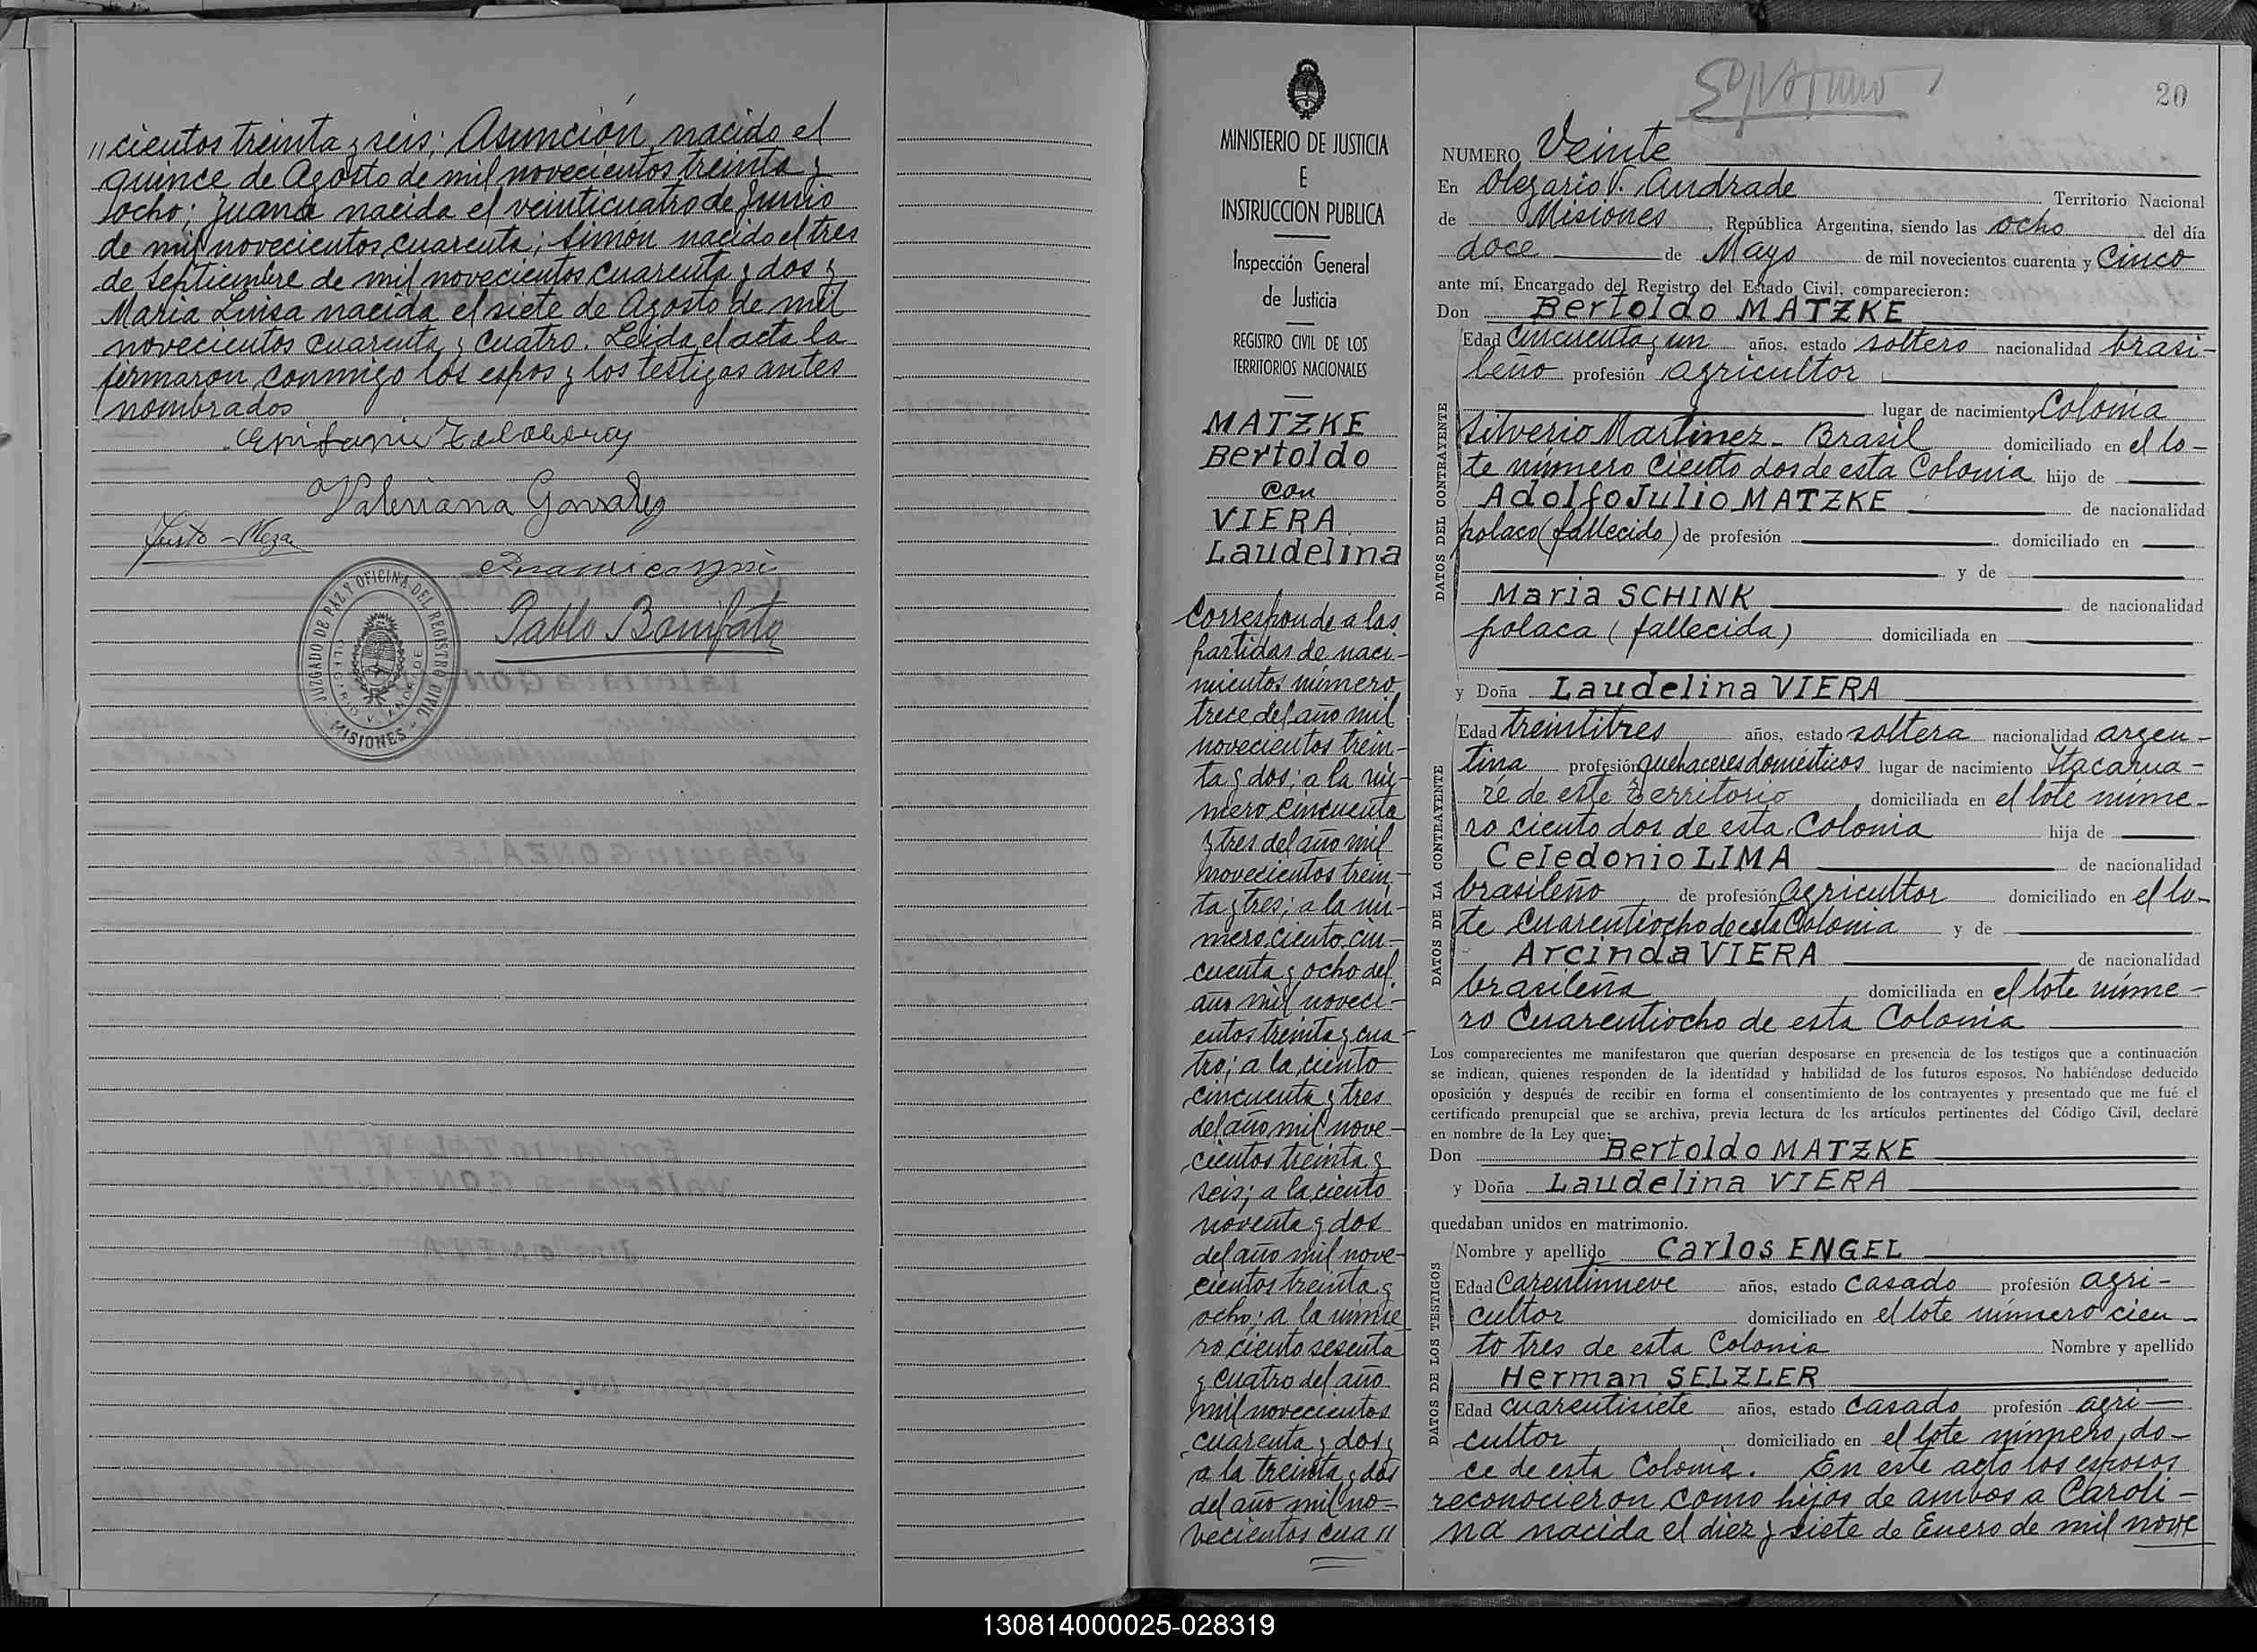 "cientos treinta y seis; Asunción, nacido el
quince de Agosto de mil novecientos treinta y
ocho; Juana nacida el veinticuatro de Junio
de mil novecientos cuarenta; Simón nacido el tres
de Septiembre de mil novecientos cuarenta y dos y
Maria Luisa nacida el siete de Agosto de mil
novecientos cuarenta y cuatro. Leida el acta la
firmaron conmigo los espos y los testigos antes
nombrados
Valeriana Gonzalez
Justo Meza
Pablo Bonifato
JUZGADO DE PAZ Y OFICINA DEL REGISTRO CIVIL
OLEGARIO V. ANDRADE
MISIONES
MINISTERIO DE JUSTICIA
E
INSTRUCCION PUBLICA
Inspección General
de Justicia
REGISTRO CIVIL DE LOS
TERRITORIOS NACIONALES
MATZKE
Bertoldo
con
VIERA
Laudelina
Corresponde a las
partidas de naci-
mientos número
trece del año mil
novecientos trein-
ta y dos; a la nú-
mero cincuenta
y tres del año mil
novecientos trein-
ta y tres; a la nú-
mero ciento cin-
cuenta y ocho del
año mil noveci-
entos treinta y cua-
tro; a la ciento
cincuenta y tres
del año mil nove-
cientos treinta y
seis; a la ciento
noventa y dos
del año mil nove-
cientos treinta y
ocho; a la núme
ro ciento sesenta
y cuatro del año
mil novecientos
cuarenta y dos y
a la treinta y dos
del año mil no-
vecientos cua "
20
NUMERO Veinte
En Olegario V. Andrade Territorio Nacional
de Misiones, República Argentina, siendo las ocho del día
doce de Mayo de mil novecientos cuarenta y Cinco
ante mí, Encargado del Registro del Estado Civil, comparecieron:
Don Bertoldo MATZKE
DATOS DEL CONTRAYENTE
Edad Cincuenta y un años, estado soltero nacionalidad brasi-
leño profesión agricultor
lugar de nacimiento Colonia
Silverio Martinez - Brasil domiciliado en el lo-
te número ciento dos de esta Colonia hijo de
Adolfo Julio MATZKE de nacionalidad
polaco (fallecido) de profesión domiciliado en
y de
Maria SCHINK de nacionalidad
polaca (fallecida) domiciliada en
y Doña Laudelina VIERA
DATOS DE LA CONTRAYENTE
Edad treintitres años, estado soltera nacionalidad argen-
tina profesión quehaceres domésticos lugar de nacimiento Itacarua-
ré de este Territorio, domiciliada en el lote núme-
ro ciento dos de esta Colonia hija de
Celedonio LIMA de nacionalidad
brasileño de profesión Agricultor domiciliado en el lo-
te cuarentiocho de esta Colonia y de
Arcinda VIERA de nacionalidad
brasileña domiciliada en el lote núme-
ro Cuarentiocho de esta Colonia
Los comparecientes me manifestaron que querían desposarse en presencia de los testigos que a continuación
se indican, quienes responden de la identidad y habilidad de los futuros esposos. No habiéndose deducido
oposición y después de recibir en forma el consentimiento de los contrayentes y presentado que me fué el
certificado prenupcial que se archiva, previa lectura de los artículos pertinentes del Código Civil, declaré
en nombre de la Ley que:
Don Bertoldo MATZKE
y Doña Laudelina VIERA
quedaban unidos en matrimonio.
DATOS DE LOS TESTIGOS
Nombre y apellido Carlos ENGEL
Edad Carentinueve años, estado casado profesión agri-
cultor domiciliado en el lote número cien-
to tres de esta Colonia Nombre y apellido
Herman SELZLER
Edad cuarentisiete años, estado casado profesión agri-
cultor domiciliado en el lote número do-
ce de esta Colonia. En este acto los esposos
reconocieron como hijos de ambos a Caroli-
na nacida el diez y siete de Enero de mil nove
130814000025-028319